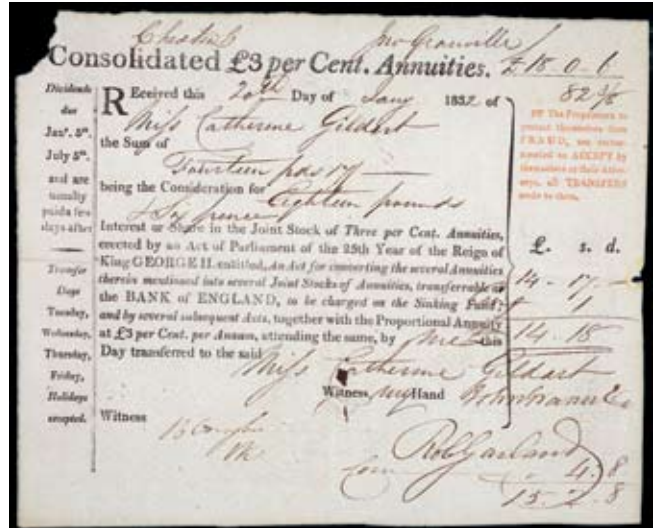 Jno Granville
Consolidated £3 per Cent. Annuities. £ 18 - 0 - 6
82 5/8
Dividends
due
Janʸ. 5ᵗʰ.
July 5ᵗʰ.
and are
usually
paid a few
days after
Transfer
Days
Tuesday,
Wednesday,
Thursday,
Friday,
Holidays
excepted.
REceived this 20th Day of Jany 1832 of
Miss Catherine Gildart
the Sum of Fourteen pds 17/-
being the Consideration for Eighteen pounds
& Six pence
Interest or Share in the Joint Stock of Three per Cent. Annuities,
erected by an Act of Parliament of the 25th Year of the Reign of
King GEORGE II. entitled, An Act for converting the several Annuities
therein mentioned into several Joint Stocks of Annuities, transferrable at
the BANK of ENGLAND, to be charged on the Sinking Fund;
and by several subsequent Acts, together with the Proportional Annuity
at £3 per Cent. per Annum, attending the same, by me this
Day transferred to the said Miss Catherine Gildart
Witness my Hand
Witness
Rob Garland
The Proprietors to
protect themselves from
FRAUD, are recommended
to ACCEPT by
themselves or their Attorneys,
all TRANSFERS
made to them.
£. s. d.
14 - 17 -
1
14 . 18
Com 4 . 8
15 . 2 . 8